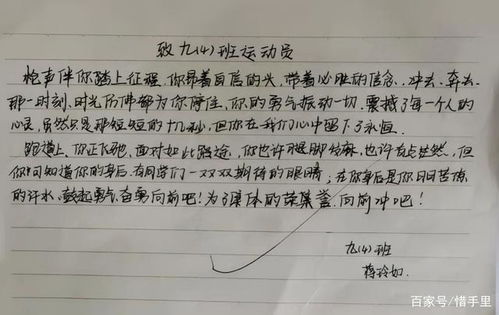 致九(4)班运动员
枪声伴你踏上征程，你昂着自信的头，带着必胜的信念，冲去、奔去
那一时刻，时光仿佛都为你停住，你的勇气振动一切，震撼了每一个人的
心灵，虽然只是那短短的十几秒，但你在我们心中留下了永恒。
跑道上，你正飞跑，面对如此路途，你也许腿脚结麻，也许有点茫然，但
你可知道你的身后，有同学们一双双期待的眼睛；在你身后是你日日苦练
的汗水，鼓起勇气奋勇向前吧！为了集体的荣誉，向前冲吧！
九(4)班
蒋玲如.
百家号/惜手里